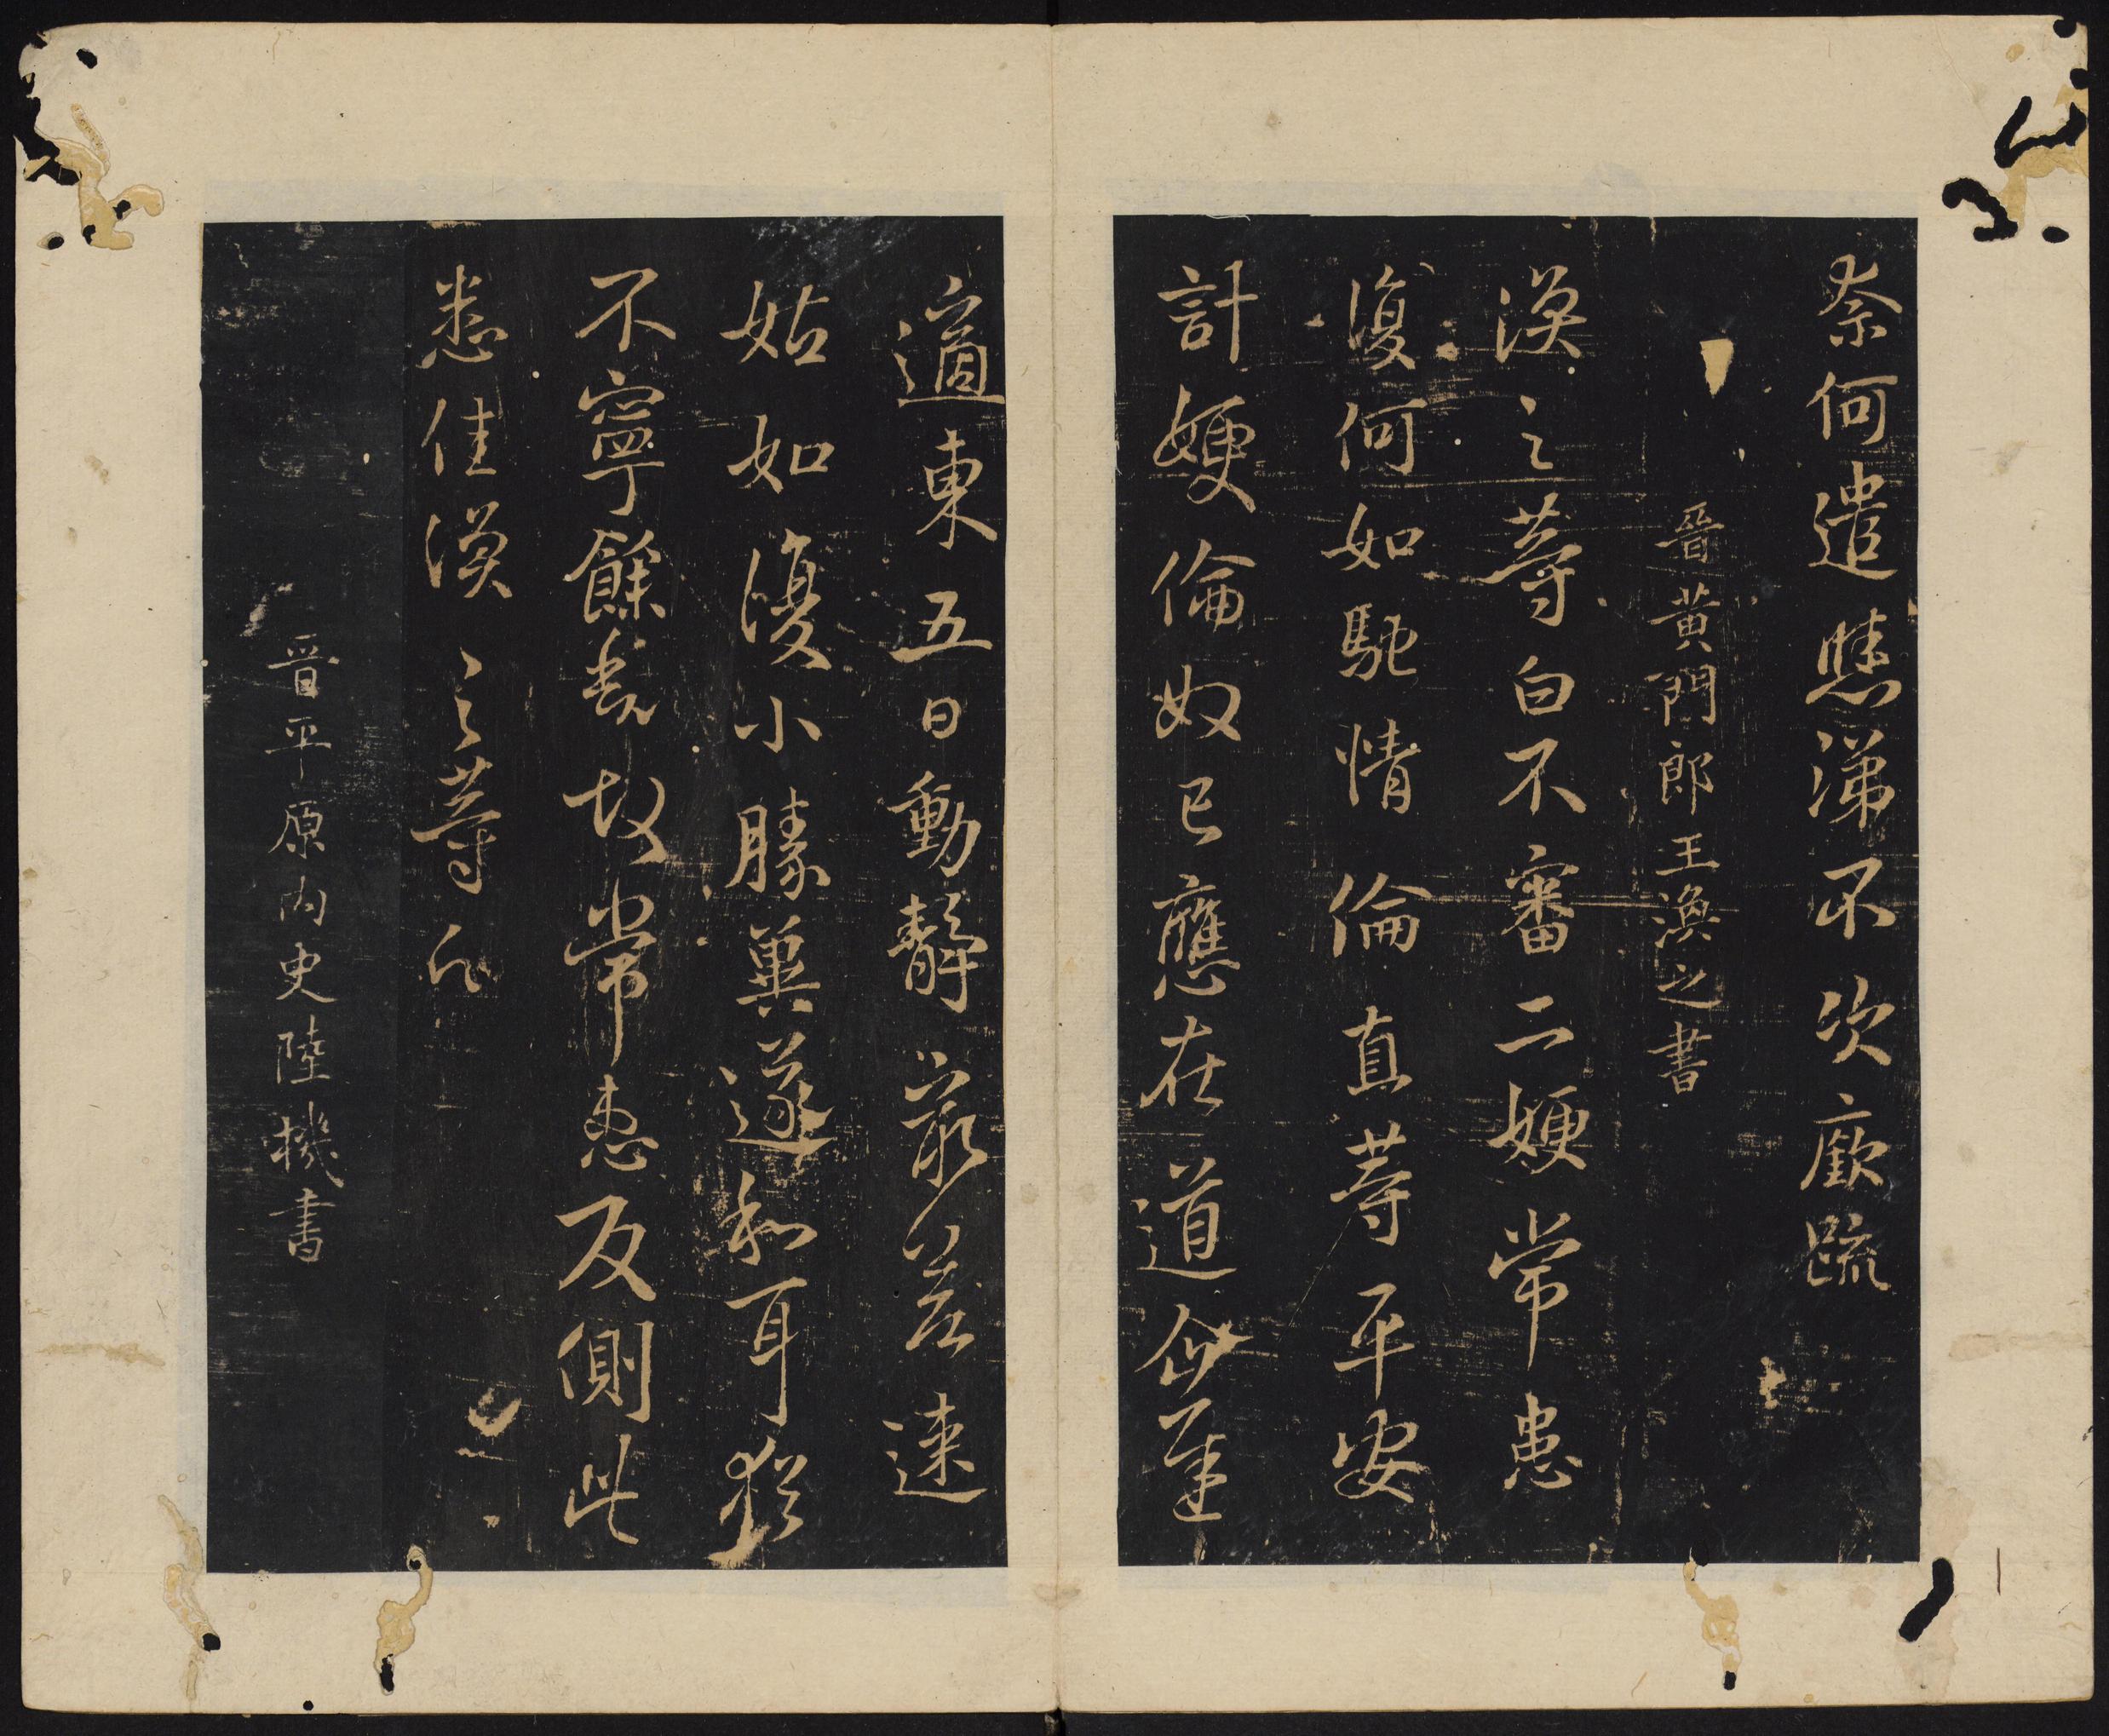 奈何遣涕不次廞疏
晉黃門郎王渙之書
渙之等白不審二嫂常患
復何如馳情倫直等平安
計嫂倫奴已應在道企遲
適東五日動靜最差速
姑如復小勝冀遂和耳猶
不寧餘悉故常患反側此
悉佳渙之等白
晉平原內史陸機書